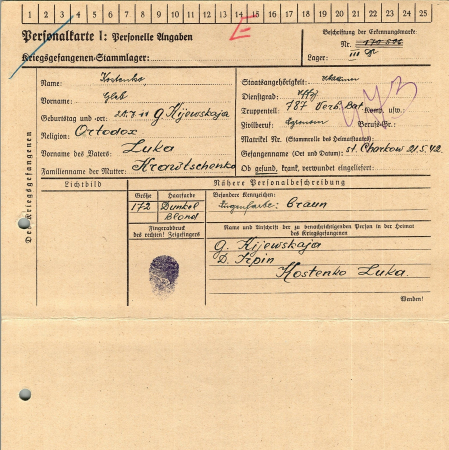 1 2 3 4 5 6 7 8 9 10 11 12 13 14 15 16 17 18 19 20 21 22 23 24 25
Personalkarte I: Personelle Angaben
Kriegsgefangenen-Stammlager:
E
Beschriftung der Erkennungsmarke
Nr.
Lager:
Des Kriegsgefangenen
Name: Kostenko
Vorname: Gleb
Geburtstag und -ort: 28.7.11 g. Kijewskaja
Religion: Ortodox
Vorname des Vaters: Luka
Familienname der Mutter: Krawtschenko
Staatsangehörigkeit: Ukrainer
Dienstgrad: Uffz
Truppenteil: 787 Verb. Bat. Komp. usw.:
Zivilberuf: Berufs-Gr.:
Matrikel Nr. (Stammrolle des Heimatstaates):
Gefangennahme (Ort und Datum): st. Charkow 21.5.42.
Ob gesund, krank, verwundet eingeliefert:
Lichtbild
Nähere Personalbeschreibung
Größe
172
Haarfarbe
Dunkel
blond
Besondere Kennzeichen:
Augenfarbe: Braun
Fingerabdruck
des rechten! Zeigefingers
Name und Anschrift der zu benachrichtigenden Person in der Heimat
des Kriegsgefangenen
g. Kijewskaja
D. Irpin
Kostenko Luka.
Wenden!